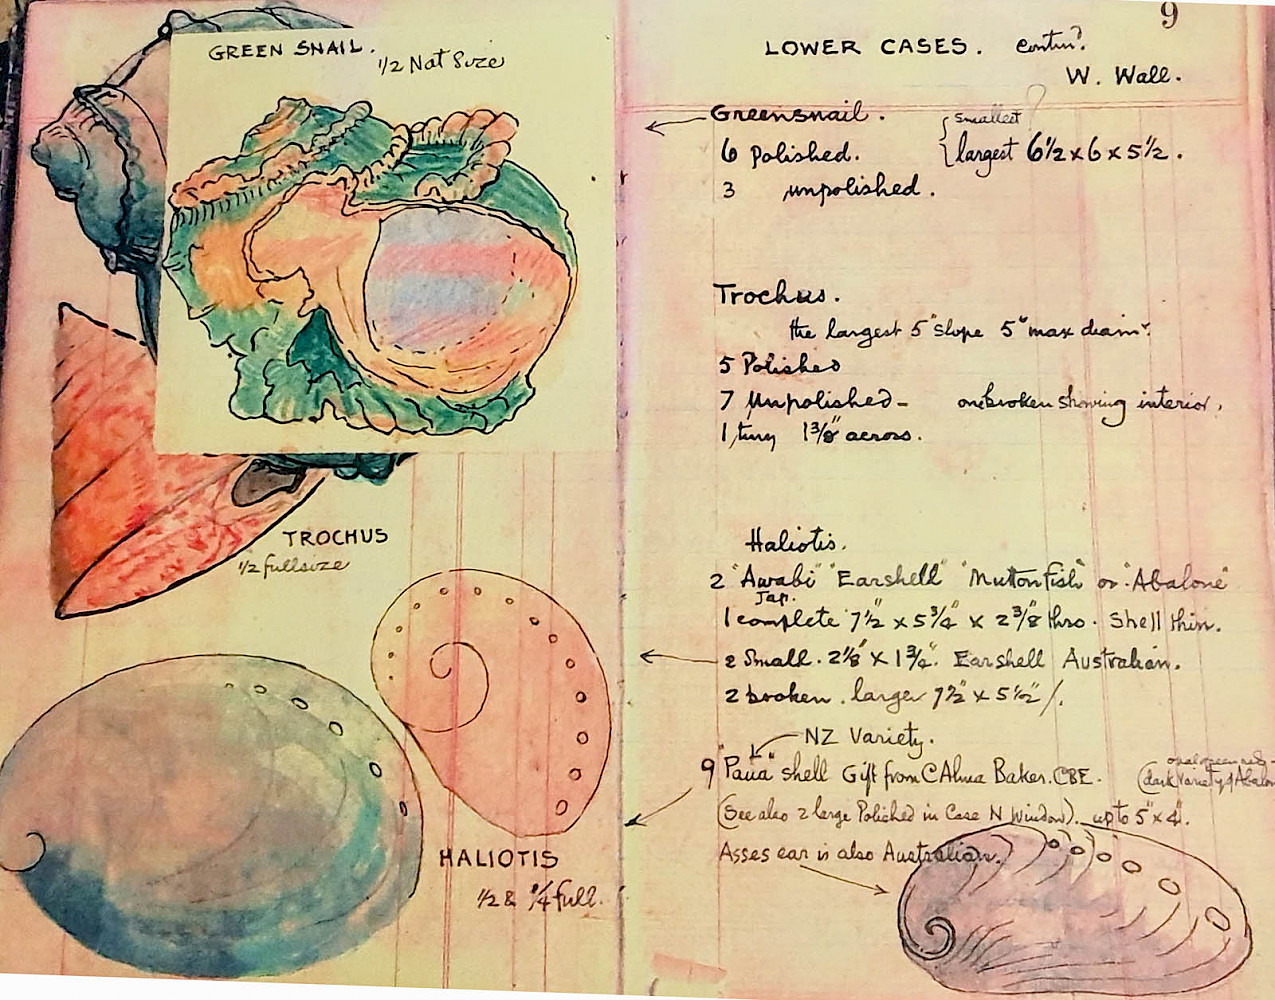 GREEN SNAIL.
1/2 Nat Size
TROCHUS
1/2 fullsize
HALIOTIS
1/2 & 1/4 full.
9
LOWER CASES. contind.
W. Wall.
Greensnail.
6 Polished.
smallest
largest 6 1/2 x 6 x 5 1/2.
3 unpolished.
Trochus.
the largest 5" slope 5" max diamr.
5 Polished
7 Unpolished - one broken showing interior.
1, tiny 1 3/8" across.
Haliotis.
2 "Awabi" "Earshell" "Muttonfish" or "Abalone"
Jap.
1 complete 7 1/2" x 5 3/4" x 2 3/8" thro. Shell thin.
2 Small. 2 1/8" x 1 3/4". Earshell Australian.
2 broken. larger 7 1/2" x 5 1/2"/.
NZ Variety.
9 "Paua" shell Gift from C Alma Baker. CBE.
(dark Variety of Abalon
(See also 2 large Polished in Case N Window). up to 5" x 4".
Asses ear is also Australian.